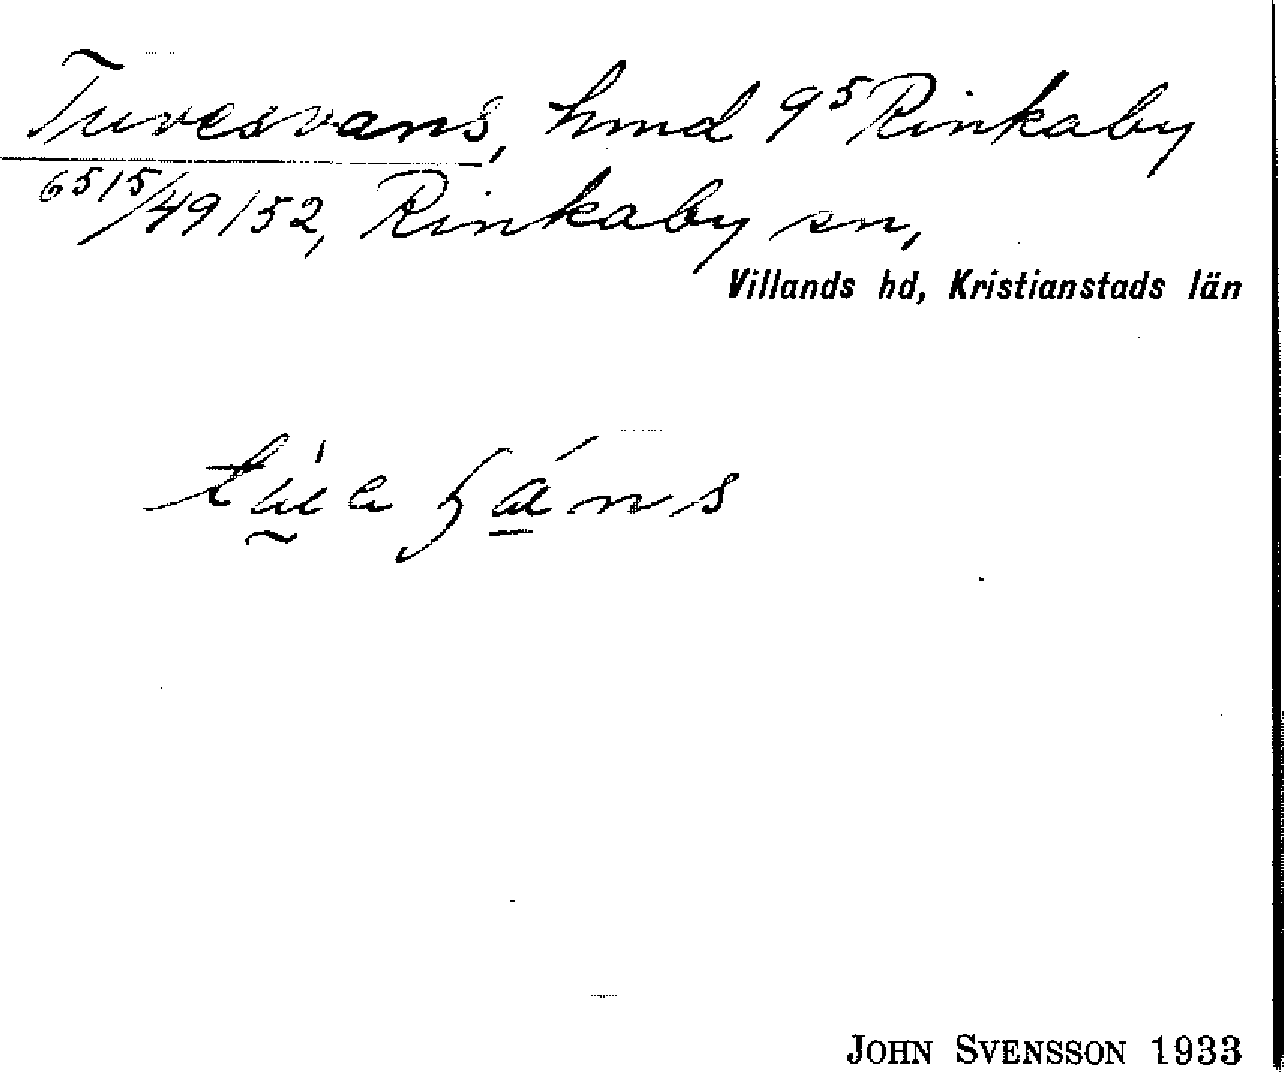 Tuvesvans, hmd 9⁵ Rinkaby
65/5/49/52, Rinkaby sn,
Villands hd, Kristianstads län
JOHN SVENSSON 1933